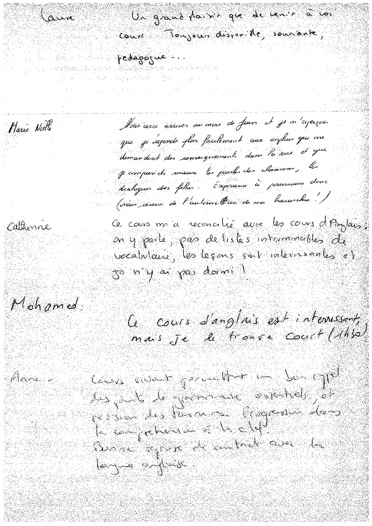 Laure
Un grand plaisir que de venir à vos
cours. Toujours disponible, souriante,
pédagogue...
Marie Noëlle
Nous voici arrivés au mois de Juin et je m'aperçois
que je réponds plus facilement aux anglais qui me
demandent des renseignements dans la rue et que
je comprends mieux les paroles des chansons, les
dialogues des films. Expérience à poursuivre donc
Catherine
Ce cours m'a réconcilié avec les cours d'Anglais :
on y parle, pas de listes interminables de
vocabulaire, les leçons sont interessantes et
je n'y ai pas dormi !
Mohamed.
Ce cours d'anglais est interressant,
mais je le trouve court (1h30)
Anne
Cours vivant permettant un bon rappel
des points de grammaire essentiels, et
des
dans
la compréhension à la clef.
Bonne reprise de contact avec la
langue anglaise.